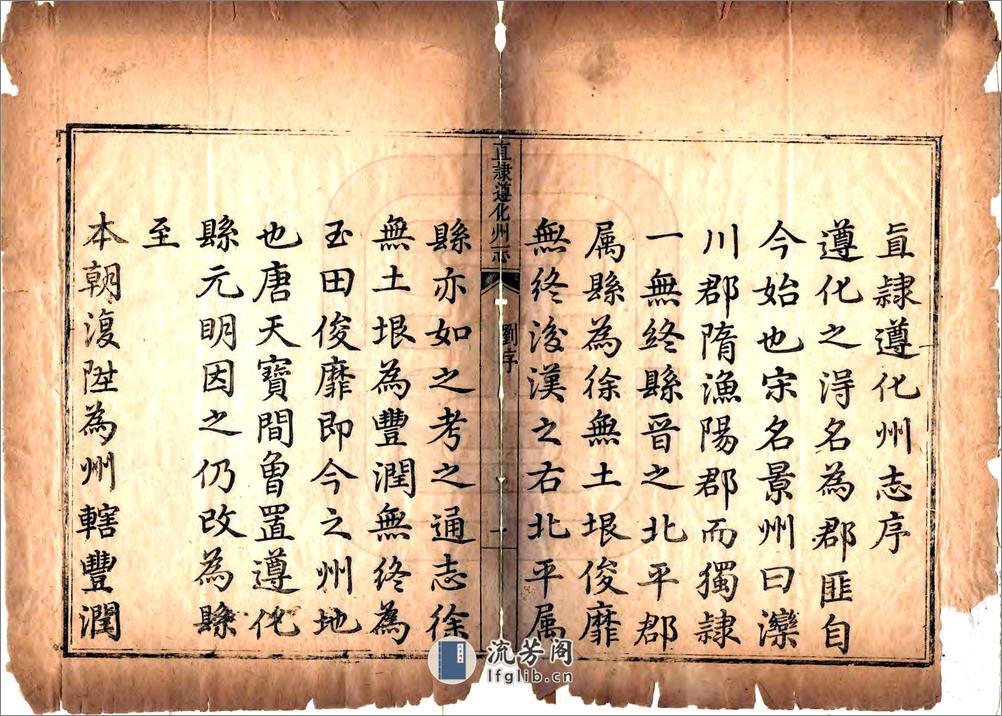 直隷遵化州志序
遵化之淂名為郡匪自
今始也宋名景州曰灤
川郡隋漁陽郡而獨隷
一無終縣晉之北平郡
属縣為徐無土垠俊靡
無終後漢之右北平属
直隷遵化州志
劉序
一
縣亦如之考之通志徐
無土垠為豐潤無終為
玉田俊靡即今之州地
也唐天寶間曾置遵化
縣元明因之仍改為縣
至
本朝復陞為州轄豐潤
流芳阁
lfglib.cn